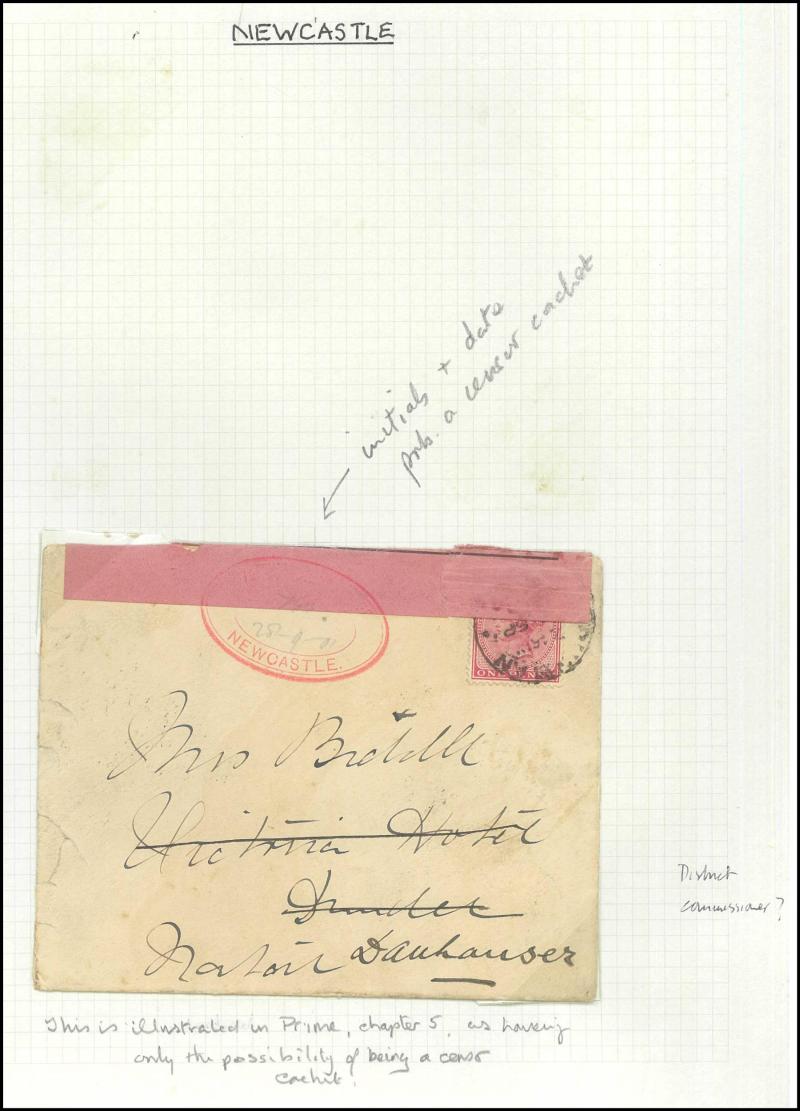 NEWCASTLE
initials + date
prob. a censor cachet
25-9-01
NEWCASTLE.
ONE PENNY
Mrs Bidelll
Victoria Hotel
Dundee
Natal Dauhauser
District
commissioner?
This is illustrated in Prime, chapter 5, as having
only the possibility of being a censor
cachet.